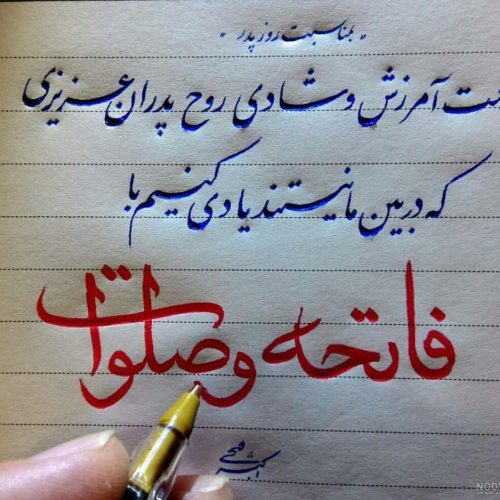 " بمناسبت روز پدر "
آمرزش و شادی روح پدران عزیزی
که در بین ما نیستند یادی کنیم با
فاتحه و صلوات